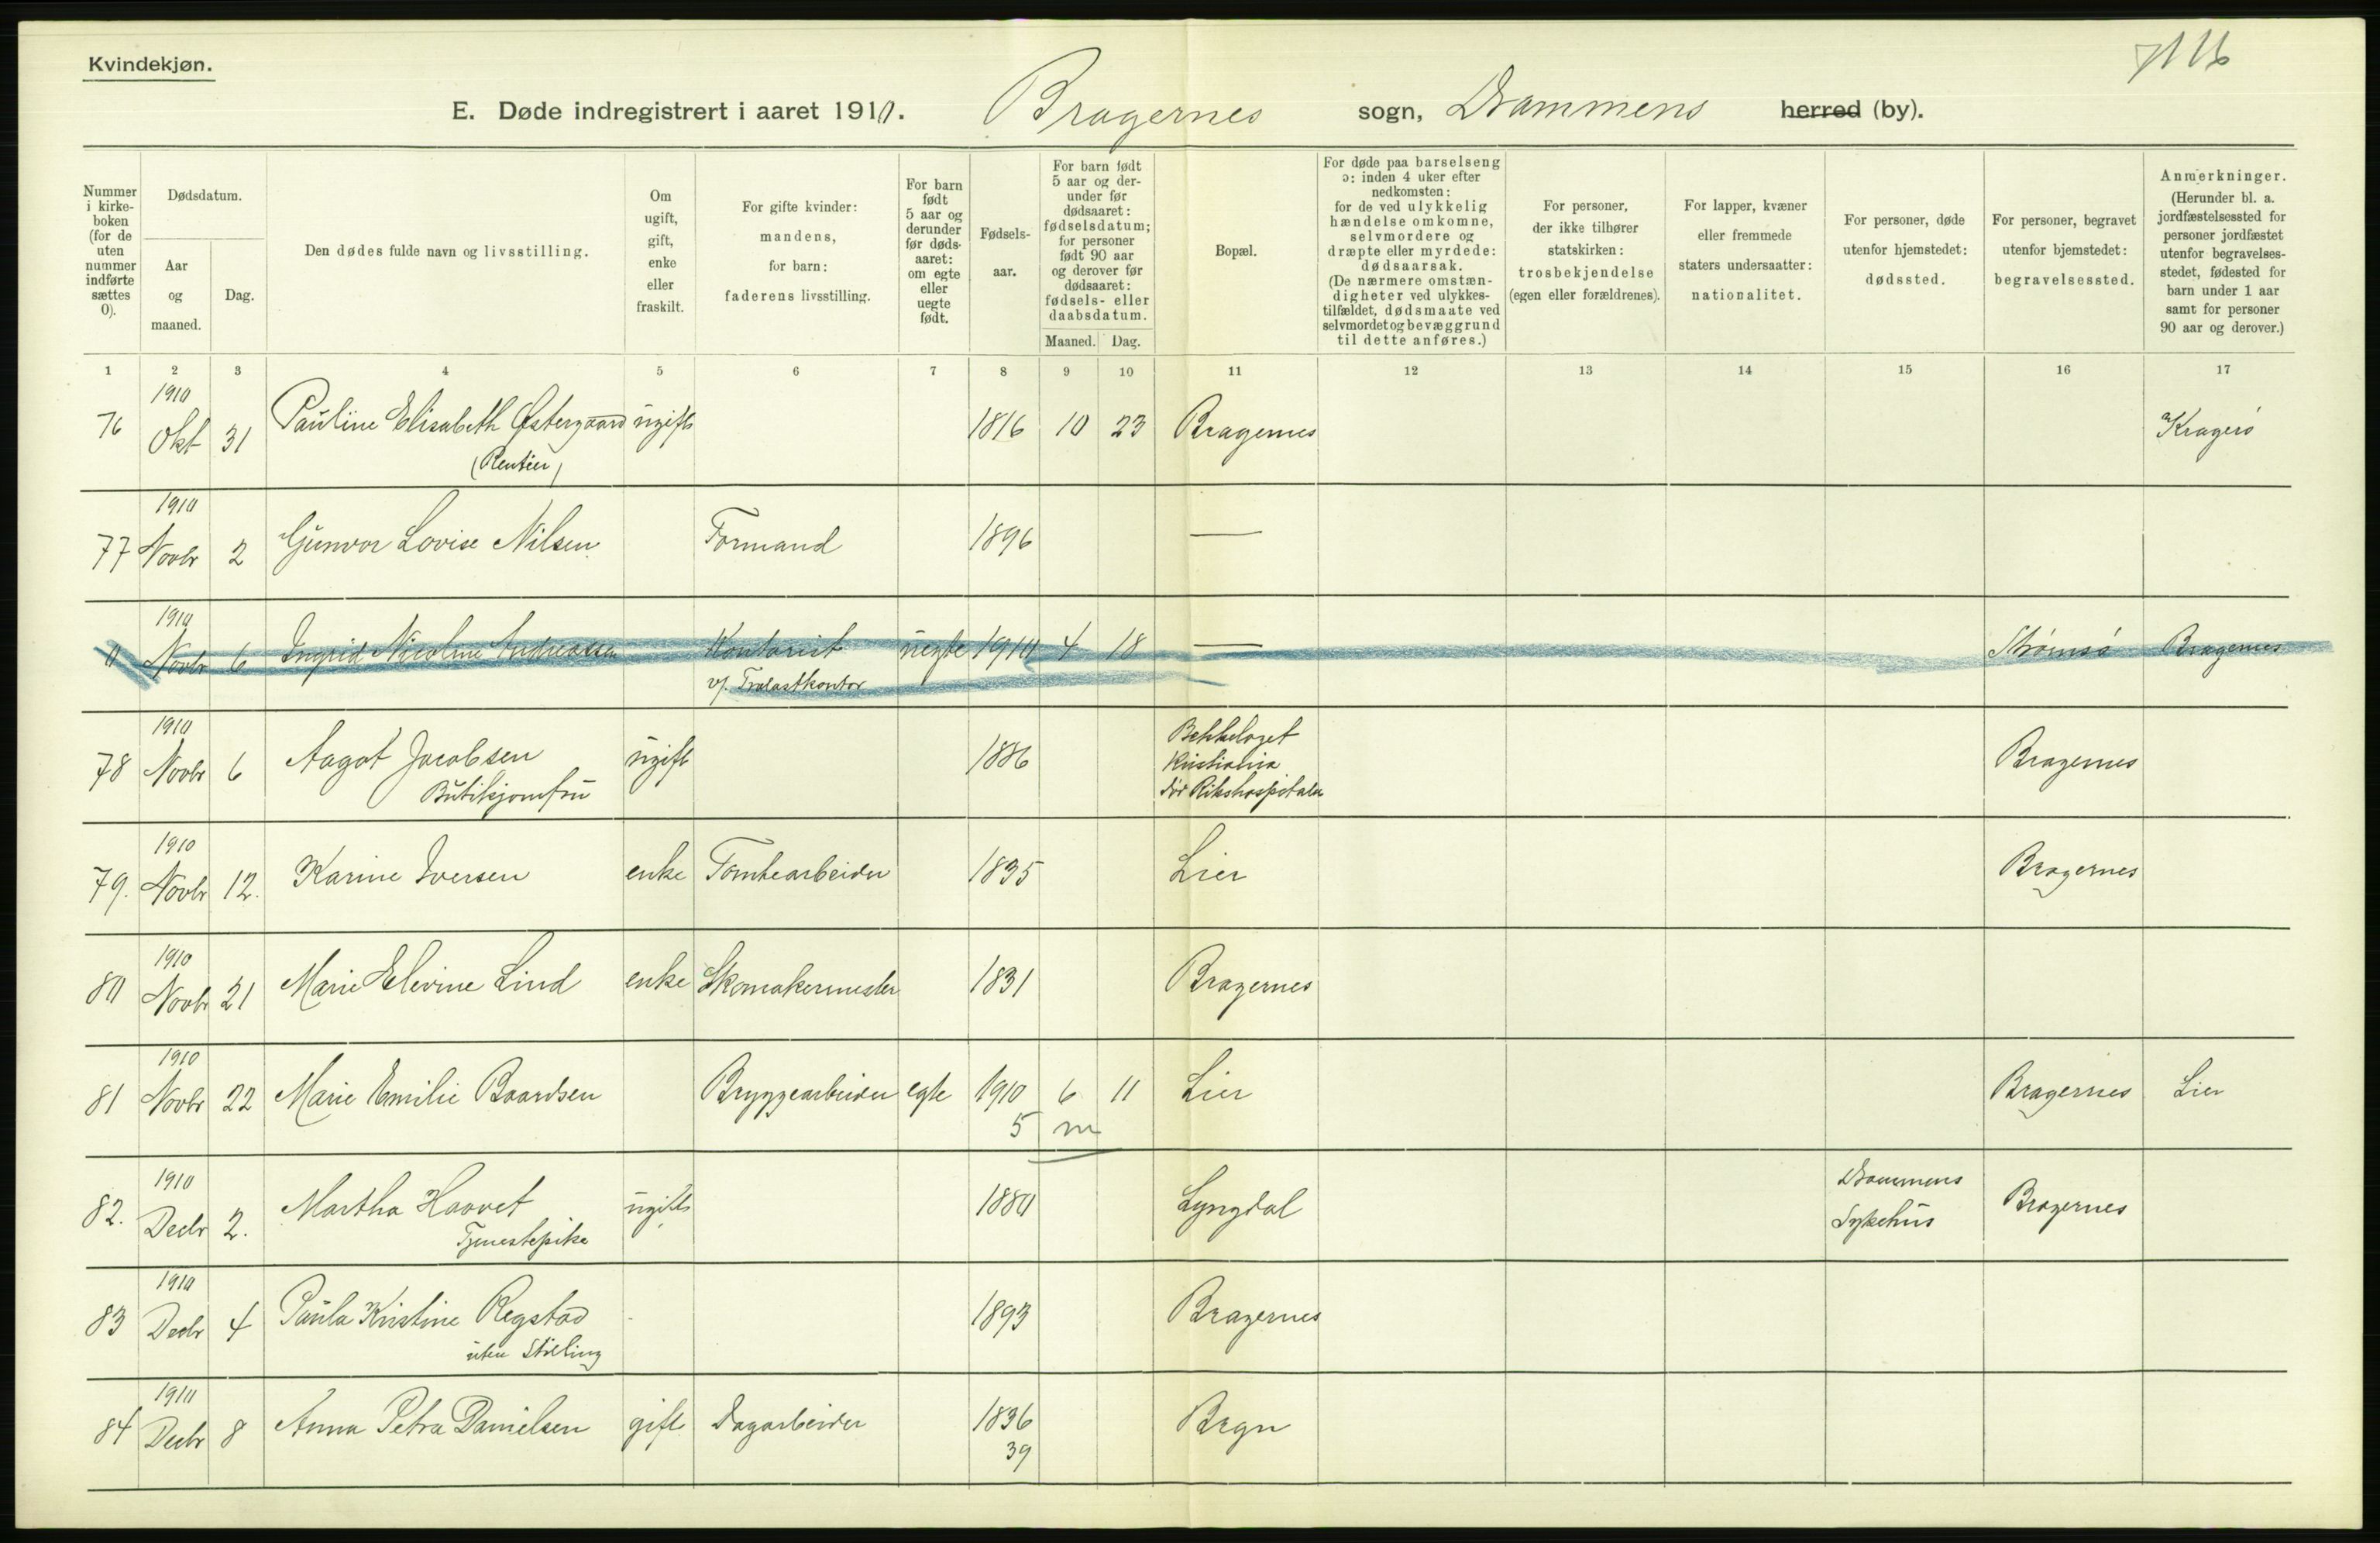 Kvindekjøn.
E. Døde indregistrert i aaret 1910. Bragernes sogn, Drammens herred (by).
Nummer i kirke-boken (for de uten nummer indførte sættes 0).
Dødsdatum.
Aar og maaned.
Dag.
Den dødes fulde navn og livsstilling.
Om ugift, gift, enke eller fraskilt.
For gifte kvinder: mandens, for barn: faderens livsstilling.
For barn født 5 aar og derunder før døds-aaret: om egte eller uegte født.
Fødsels-aar.
For barn født 5 aar og der-under før dødsaaret: fødselsdatum; for personer født 90 aar og derover før dødsaaret: fødsels- eller daabsdatum.
Maaned. Dag.
Bopæl.
For døde paa barselseng ɔ: inden 4 uker efter nedkomsten: for de ved ulykkelig hændelse omkomne, selvmordere og dræpte eller myrdede: dødsaarsak. (De nærmere omstæn-digheter ved ulykkes-tilfældet, dødsmaate ved selvmordet og bevæggrund til dette anføres.)
For personer, der ikke tilhører statskirken: trosbekjendelse (egen eller forældrenes).
For lapper, kvæner eller fremmede staters undersaatter: nationalitet.
For personer, døde utenfor hjemstedet: dødssted.
For personer, begravet utenfor hjemstedet: begravelsessted.
Anmerkninger. (Herunder bl. a. jordfæstelsessted for personer jordfæstet utenfor begravelses-stedet, fødested for barn under 1 aar samt for personer 90 aar og derover.)
1 2 3 4 5 6 7 8 9 10 11 12 13 14 15 16 17
1910
76 Okt 31 Pauline Elisabeth Østergaard ugift 1816 10 23 Bragernes Kragerø
(Rentier)
1910
77 Novbr 2 Gunvor Lovise Nilsen Formand 1896 —
1910
0 Novbr 6 Ingrid Nicoline Andreassen Kontorist uegte 1910 4 18 — Strømsø Bragernes
v/. Trælastkontor
1910
78 Novbr 6 Aagot Jacobsen ugift 1886 Bekkelaget Kristiania Bragernes
Butikjomfru død Rikshospitalet
1910
79. Novbr 12. Karine Iversen enke Tomtearbeider 1835 Lier Bragernes
1910
80 Novbr 21 Marie Elevine Lind enke Skomakermester 1831 Bragernes
1910
81 Novbr 22 Marie Emilie Baardsen Bryggearbeider egte 1910 6 11 Lier Bragernes Lier
5 m
1910
82. Decbr 2. Martha Haavet ugift 1880 Lyngdal Drammens Sykehus Bragernes
Tjenestepike
1910
83 Decbr 4 Paula Kristine Regstad 1893 Bragernes
uten Stilling
1910
84 Decbr 8 Anna Petra Danielsen gift Dagarbeider 1836 Brgn
39